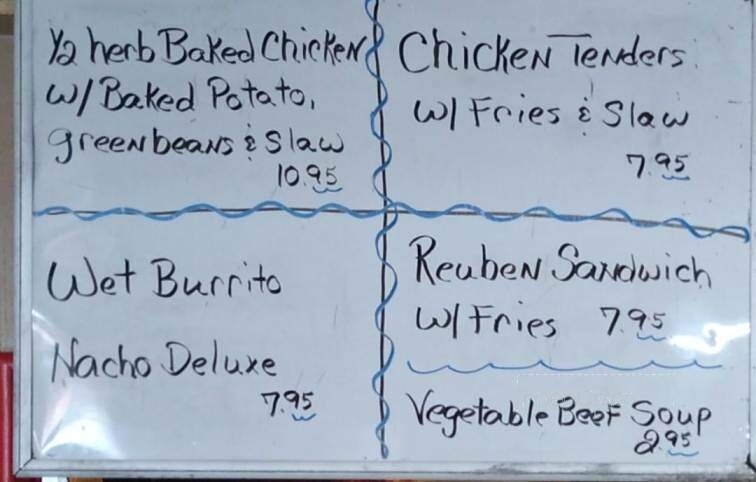 1/2 herb Baked Chicken
w/ Baked Potato,
green beans & Slaw
10.95
Chicken Tenders
w/ Fries & Slaw
7.95
Wet Burrito
Nacho Deluxe
7.95
Reuben Sandwich
w/ Fries 7.95
Vegetable Beef Soup
2.95